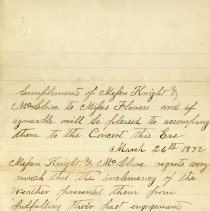 Compliments of Messrs Knight &
McClure to Misses Flowers and if
agreeable will be pleased to accompany
them to the Concert this Eve
March 26th 1872
Messrs Knight & McClure regrets very
much that the inclemency of the
weather prevented them from
fulfilling their last engagement